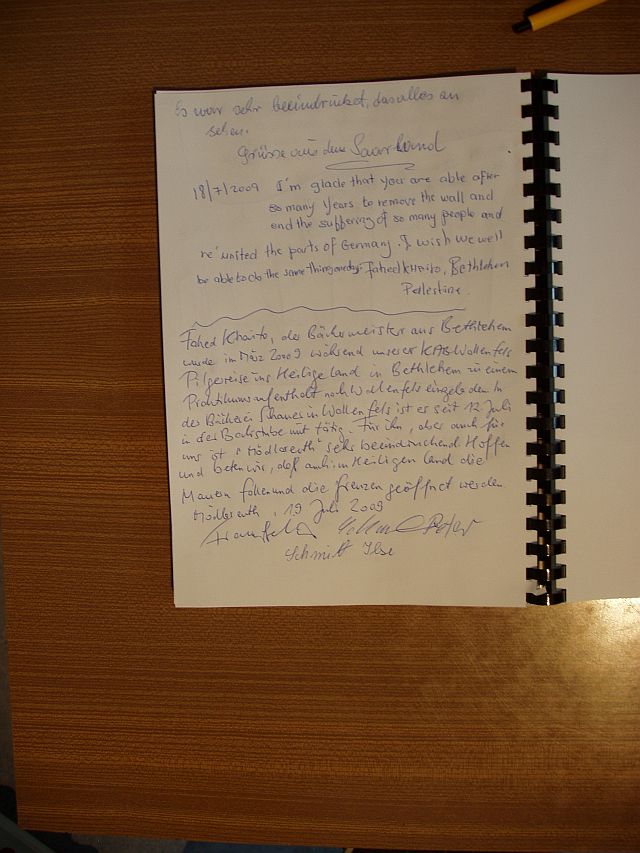 Es war sehr beeindruckt, das alles an
sehen.
Grüsse aus dem Saarland
18/7/2009 I'm glade that you are able after
so many years to remove the wall and
end the suffering of so many people and
re'united the parts of Germany. I wish we well
be able to do the same thing oneday. Fahed Khairo, Bethlehem
Palestine.
Fahed Khairo, der Bäckermeister aus Bethlehem
wurde im März 2009 während unserer KAB Wallenfels
Pilgerreise ins Heilige Land in Bethlehem zu einem
Praktikumsaufenthalt nach Wallenfels eingeladen. In
der Bäckerei in Wallenfels ist er seit 12. Juli
in der Backstube mit tätig. Für ihn, aber auch für
uns ist "Mödlareuth" sehr beeindruckend. Hoffen
und beten wir, daß auch im Heiligen Land die
Mauern fallen und die Grenzen geöffnet werden.
Mödlareuth, 19 Juli 2009
Peter
Schmitt Ilse